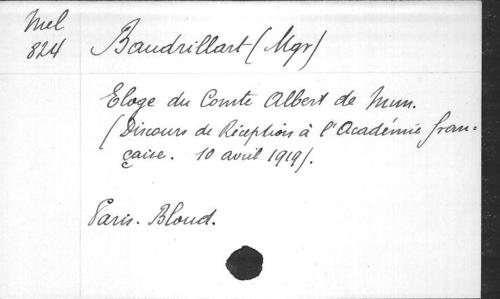 Mel
824
Baudrillart (Mgr)
Eloge du Comte Albert de Mun.
(Discours de Réception à l'Académie fran-
çaise. 10 avril 1919).
Paris. Bloud.